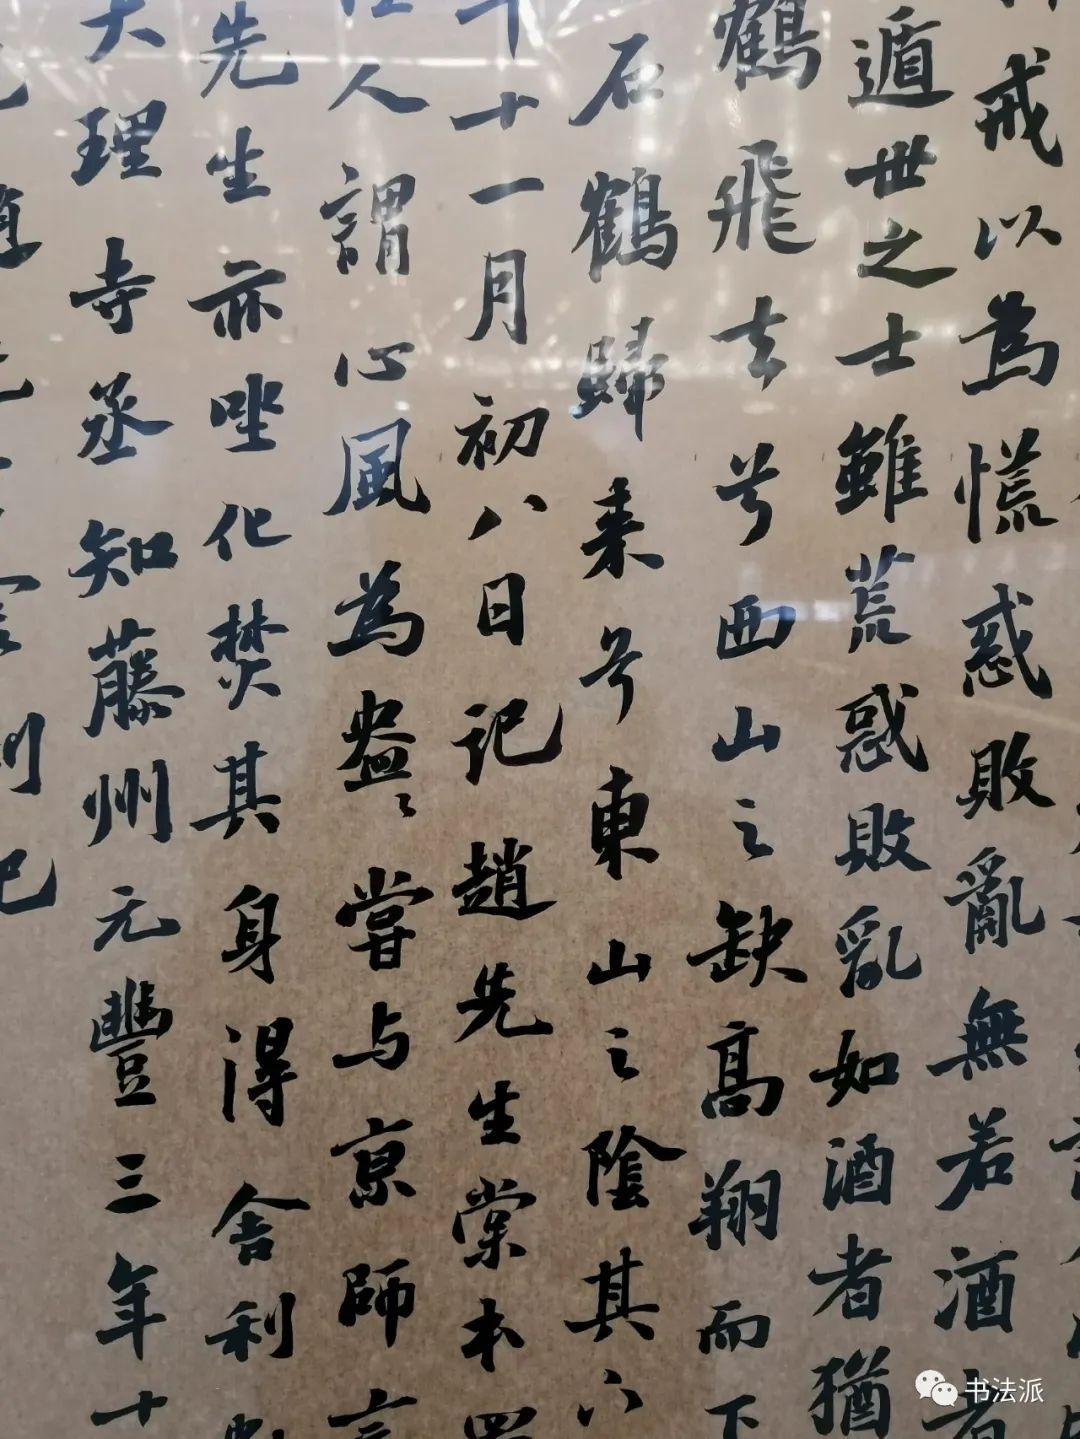 戒以為慌惑敗亂無若酒者
遁世之士雖荒惑敗乱如酒者猶
鶴飛去兮西山之缺高翔而下
石鶴歸来兮東山之陰其下
十一月初八日記趙先生棠本
人謂心風為盎〻嘗与京師言
先生亦唑化焚其身得舍利
大理寺丞知藤州元豐三年十
书法派